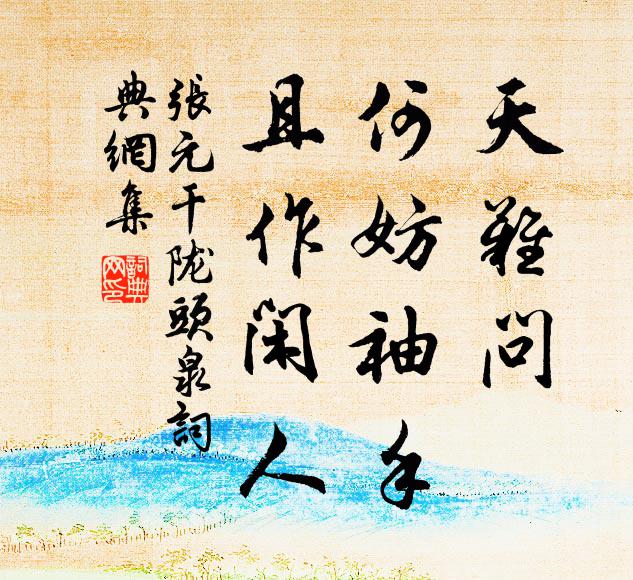 天難問
何妨袖手
且作閑人
張元干陇頭泉詞
典網集
詞典網印